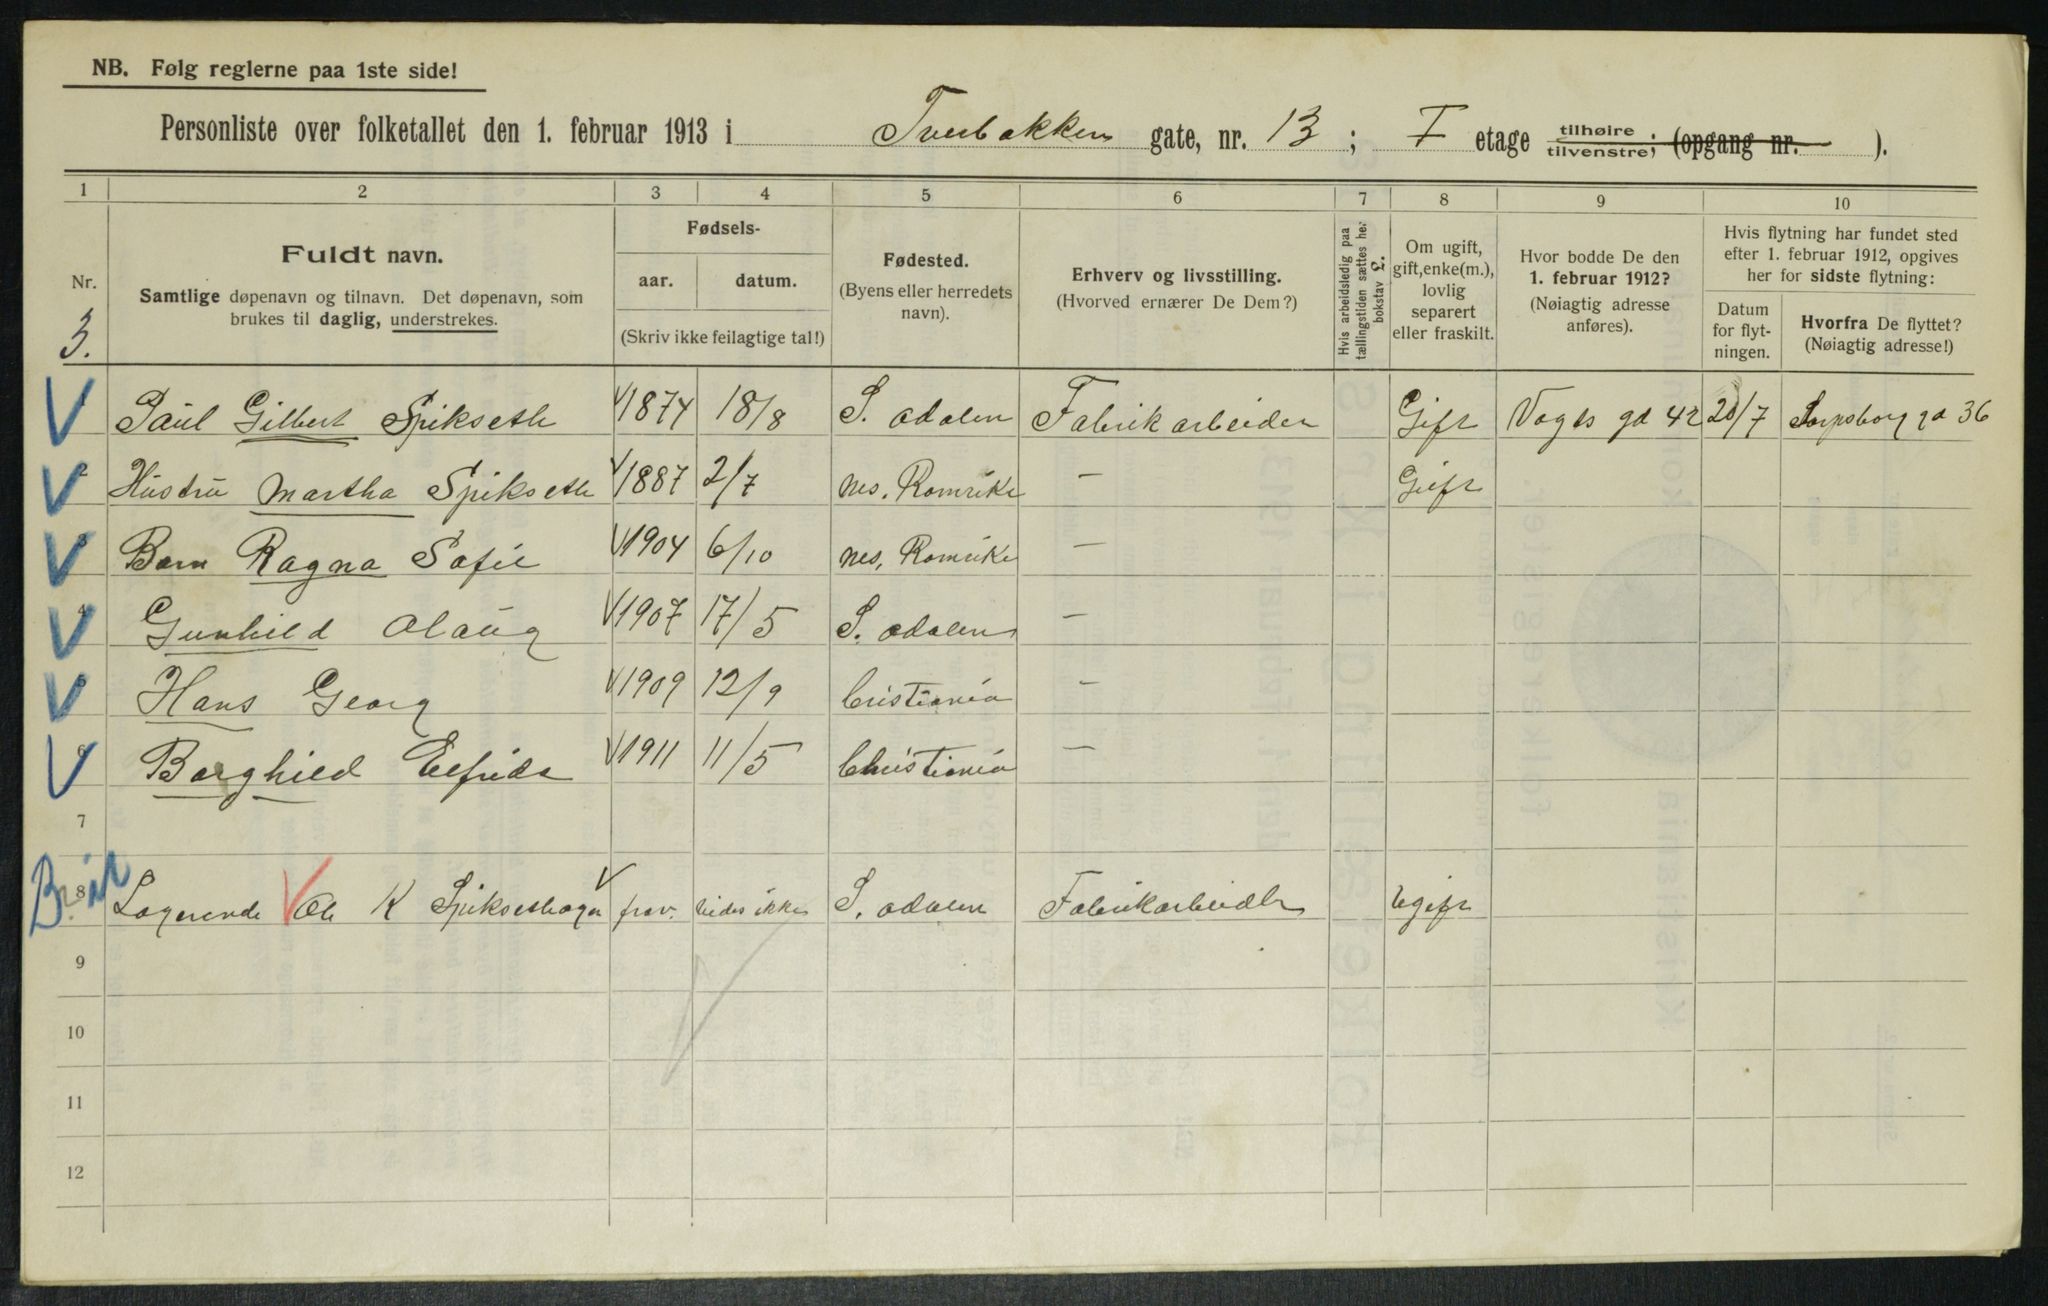 NB. Følg reglerne paa 1ste side!
Personliste over folketallet den 1. februar 1913 i Tverbakken gate, nr. 13; I etage tilhøire tilvenstre; (opgang nr. ).
1 2 3 4 5 6 7 8 9 10
Nr.
3.
Fuldt navn.
Samtlige døpenavn og tilnavn. Det døpenavn, som
brukes til daglig, understrekes.
Fødsels-
aar. datum.
(Skriv ikke feilagtige tal!)
Fødested.
(Byens eller herredets
navn).
Erhverv og livsstilling.
(Hvorved ernærer De Dem?)
Hvis arbeidsledig paa
tællingstiden sættes he.
bokstav L.
Om ugift,
gift, enke(m.),
lovlig
separert
eller fraskilt.
Hvor bodde De den
1. februar 1912?
(Nøiagtig adresse
anføres).
Hvis flytning har fundet sted
efter 1. februar 1912, opgives
her for sidste flytning:
Datum
for flyt-
ningen.
Hvorfra De flyttet?
(Nøiagtig adresse!)
1 Paul Gilbert Spikseth 1874 18/8 S. odalen Fabrikarbeider Gift Vogts gd 42 20/7 Sarpsborg gd 36
2 Hustru Martha Spikseth 1887 2/7 nes. Romrike – Gift
3 Barn Ragna Sofie 1904 6/10 nes, Romrike –
4 Gunhild Olaug 1907 17/5 S. odalen –
5 Hans Georg 1909 12/9 Cristiania –
6 Borghild Elfrida 1911 11/5 Christiania –
7
8 Logerende Ole K Spiksethagen frav. vides ikke S. odalen Fabrikarbeider Ugift
9
10
11
12